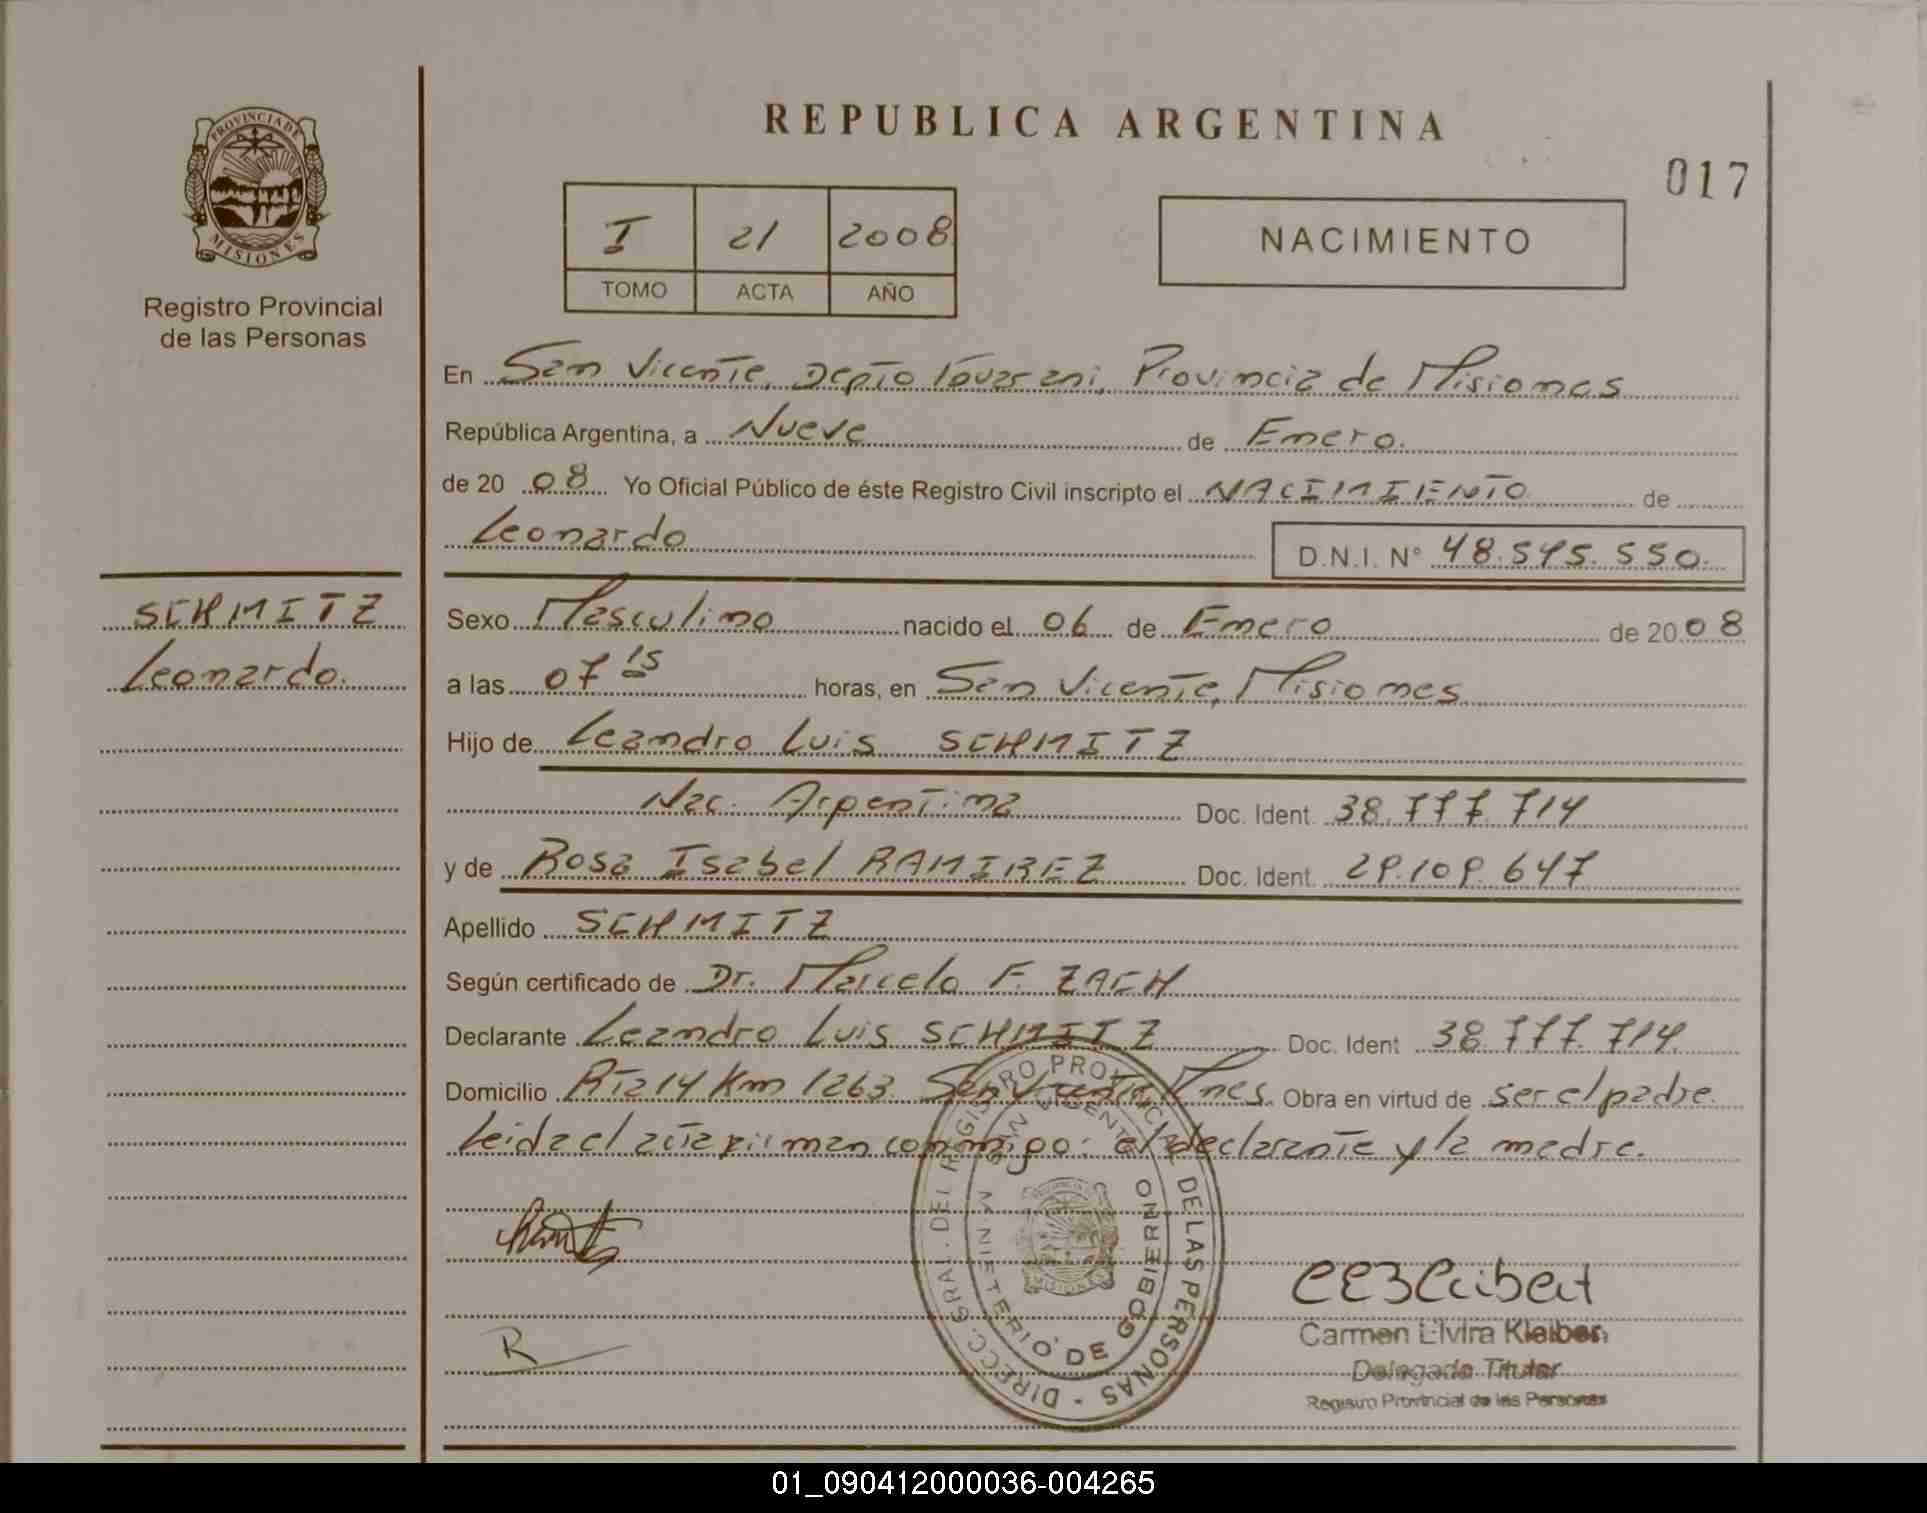 REPUBLICA ARGENTINA
017
PROVINCIA DE MISIONES
Registro Provincial
de las Personas
I 21 2008
TOMO ACTA AÑO
NACIMIENTO
En San Vicente, Depto Guarani, Provincia de Misiones
República Argentina, a Nueve de Enero.
de 20 08 Yo Oficial Público de éste Registro Civil inscripto el NACIMIENTO de
Leonardo D.N.I. N° 48.595.550.
SCHMITZ
Leonardo.
Sexo Masculino nacido el 06 de Enero de 20 08
a las 07 15 horas, en San Vicente, Misiones
Hijo de Leandro Luis SCHMITZ
Nac. Argentina Doc. Ident. 38.777.714
y de Rosa Isabel RAMIREZ Doc. Ident. 29.109.647
Apellido SCHMITZ
Según certificado de Dr. Marcelo F. ZACH
Declarante Leandro Luis SCHMITZ Doc. Ident 38.777.714.
Domicilio Rta 14 Km 1263. San Vicente Mnes. Obra en virtud de ser el padre.
Leida el acta firman conmigo: el declarante y la madre.
DIRECC. GRAL. DEL REGISTRO PROVINCIAL DE LAS PERSONAS -
SAN VICENTE
MINISTERIO DE GOBIERNO
MISIONES
R
Carmen Elvira Kleiber
Delegada Titular
Registro Provincial de las Personas
01_090412000036-004265